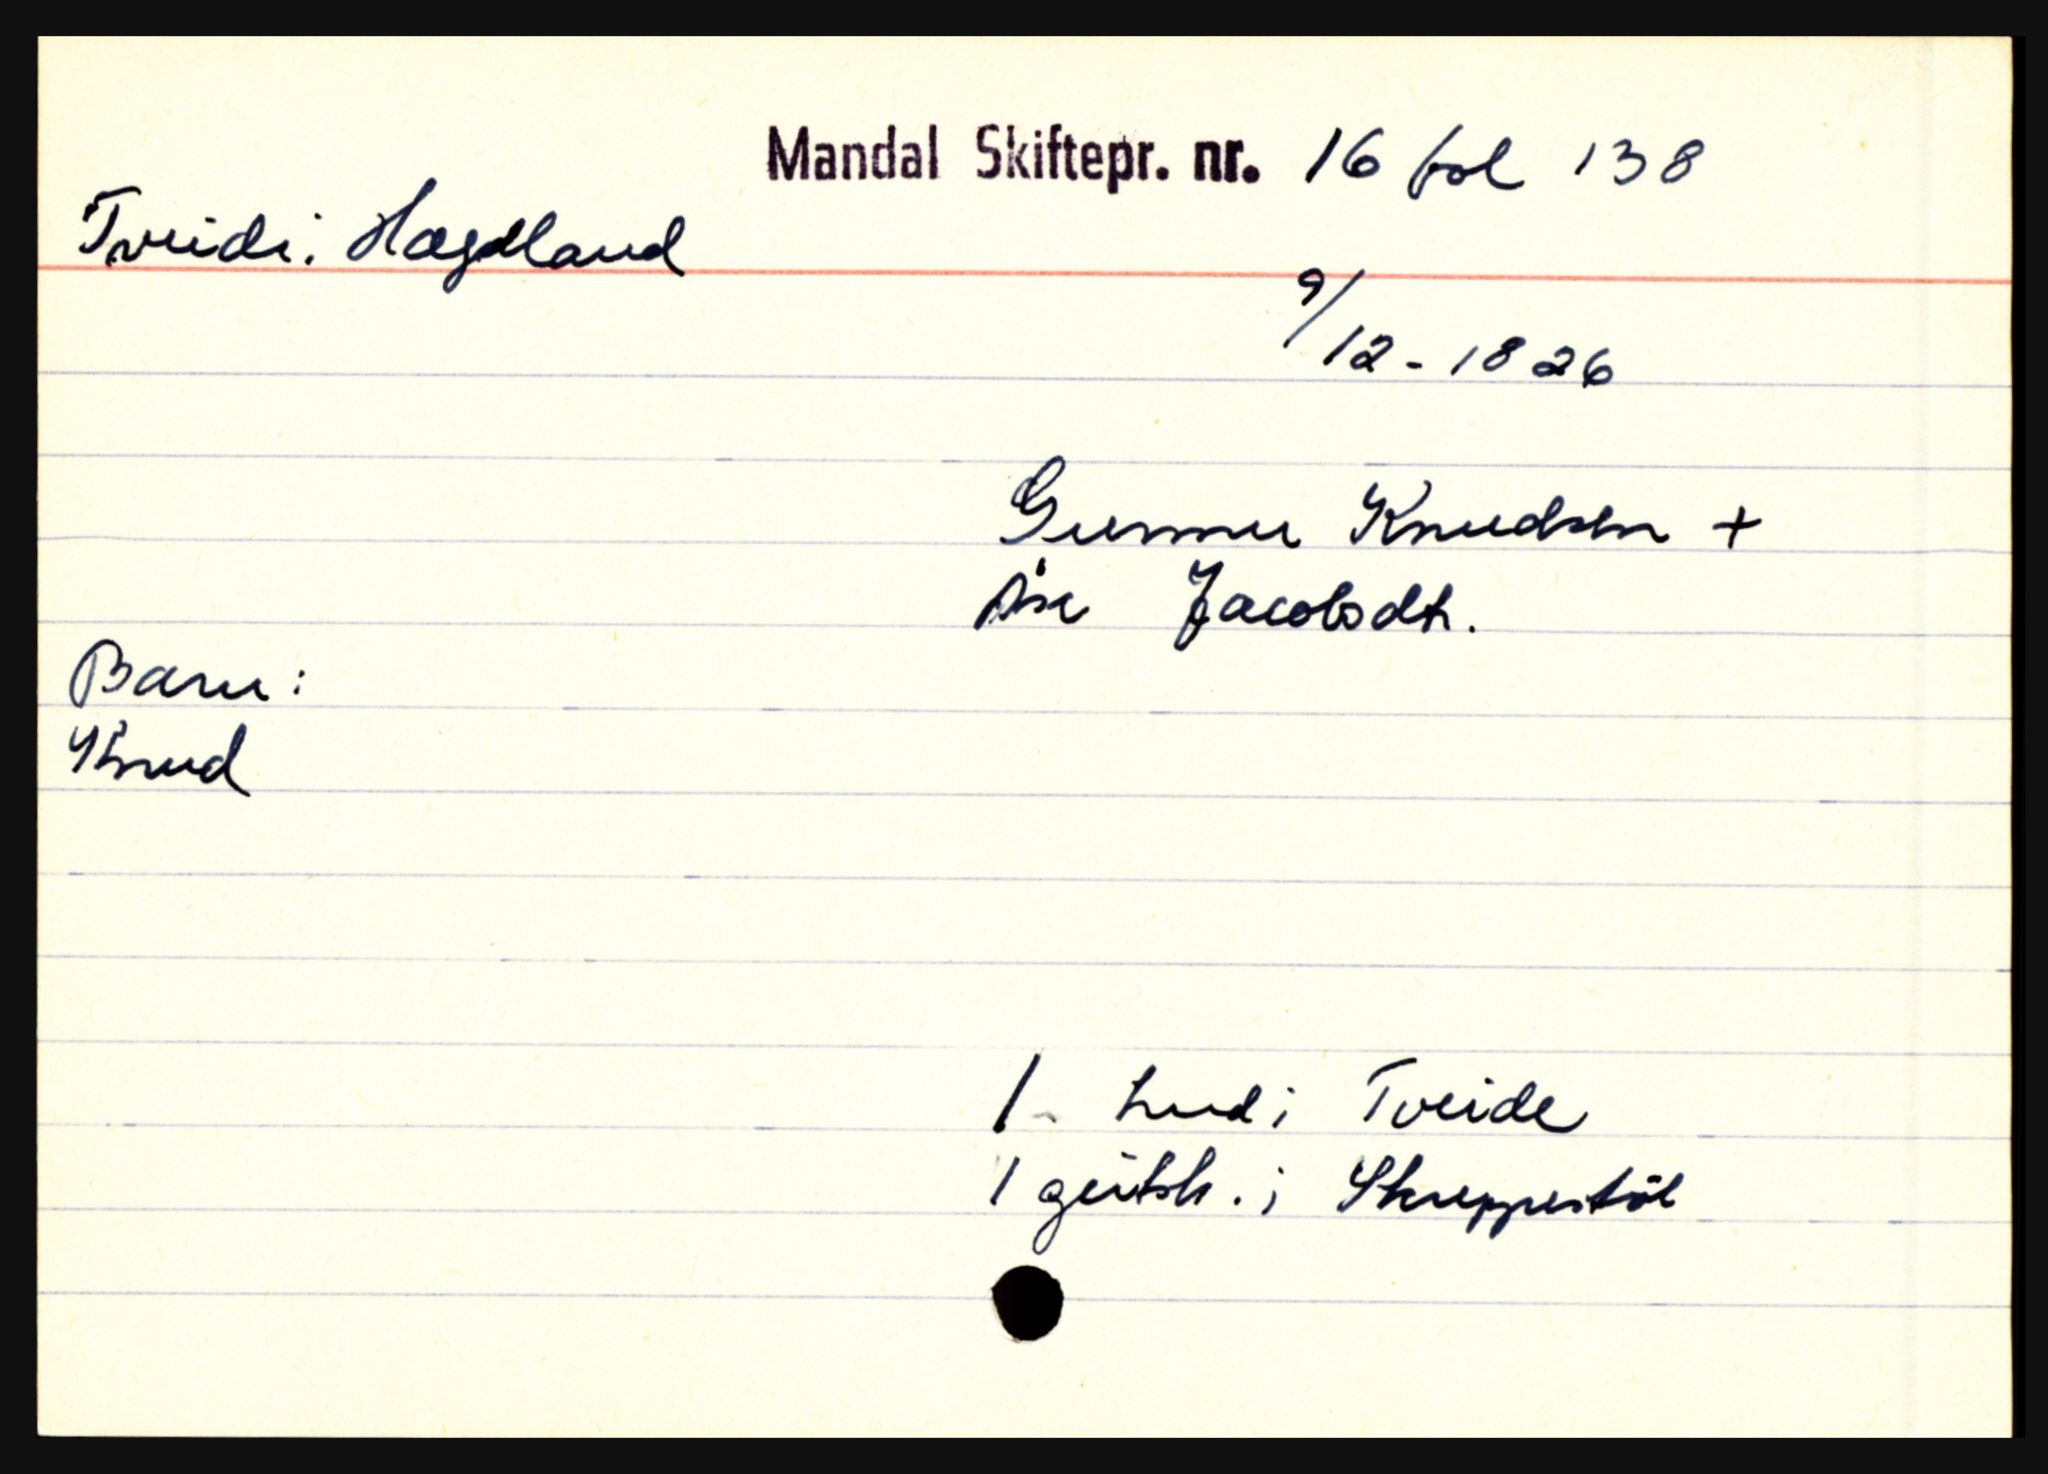 Mandal Skiftepr. nr. 16 fol 138
Tveide i Hægeland
9/12 - 1826
Gunner Knudsen +
Åse Jacobsdt.
Barn:
Knud
1 hud i Tveide
1 geitsk. i Skreppestöl